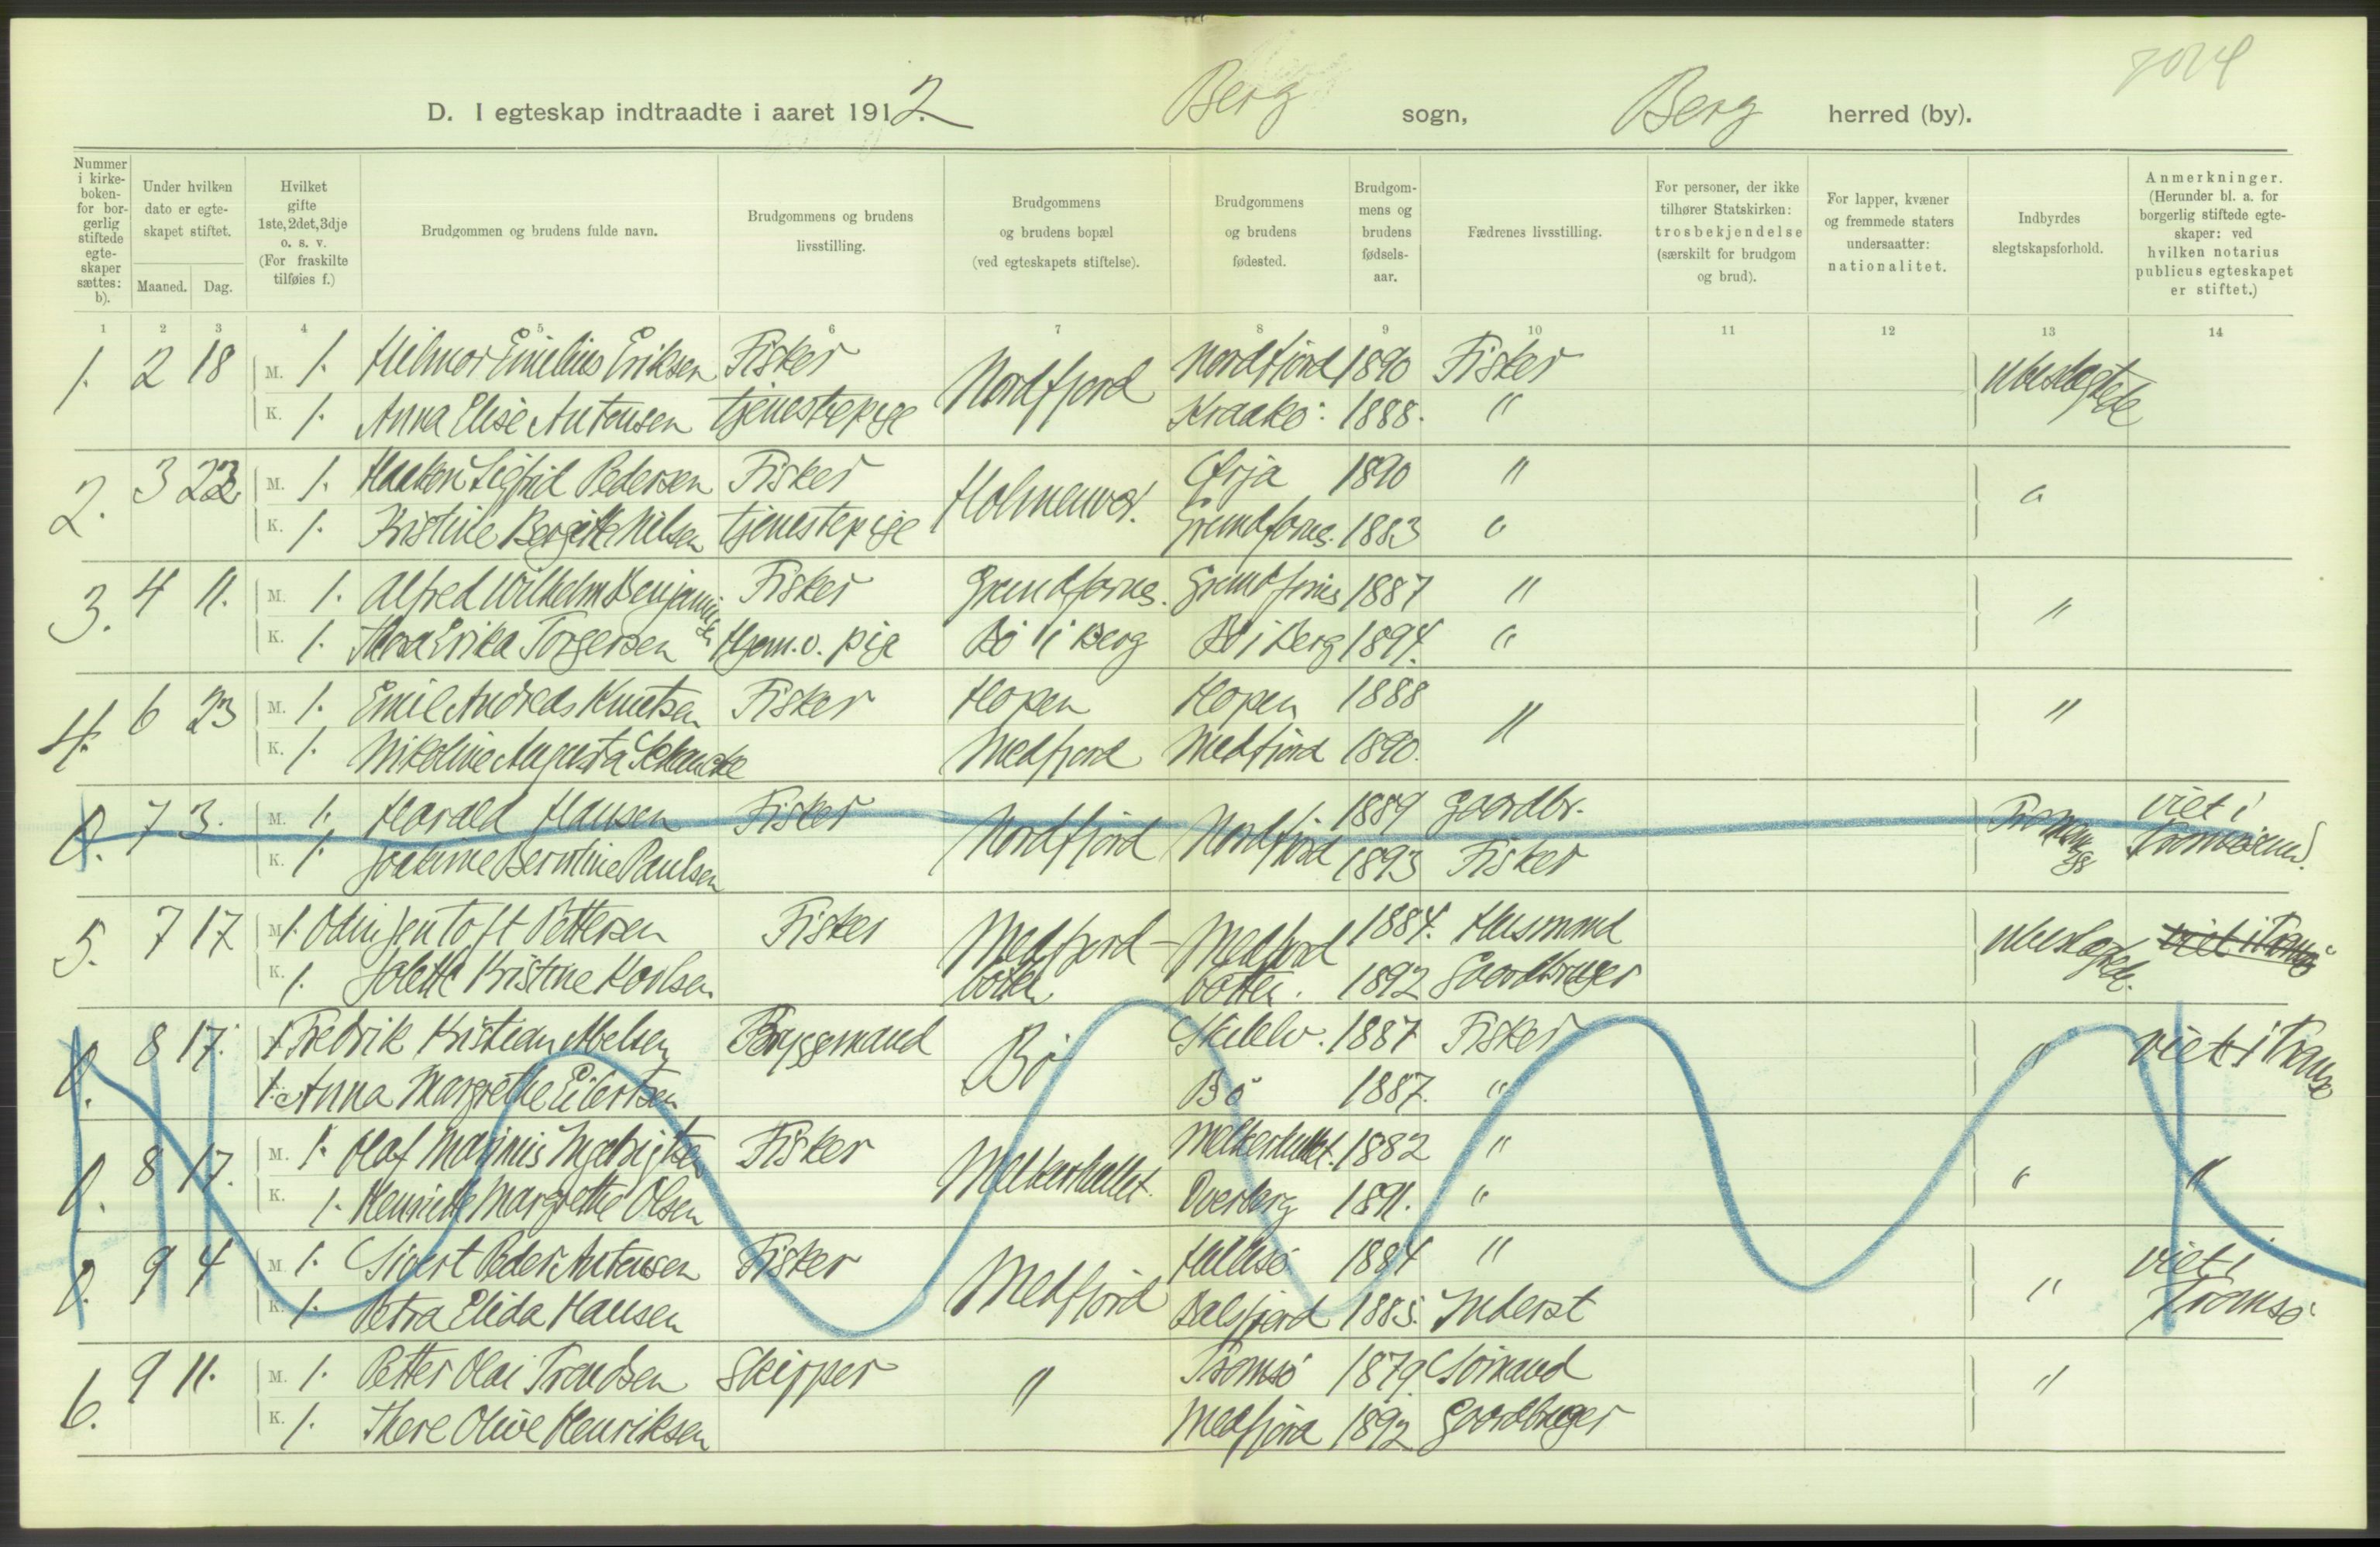 7024
D. I egteskap indtraadte i aaret 1912. Berg sogn, Berg herred (by).
Nummer i kirkeboken- for borgerlig stiftede egteskaper sættes: b).
Under hvilken dato er egteskapet stiftet.
Maaned. Dag.
Hvilket gifte 1ste, 2det, 3dje o. s. v. (For fraskilte tilføies f.)
Brudgommen og brudens fulde navn.
Brudgommens og brudens livsstilling.
Brudgommens og brudens bopæl (ved egteskapets stiftelse).
Brudgommens og brudens fødested.
Brudgommens og brudens fødselsaar.
Fædrenes livsstilling.
For personer, der ikke tilhører Statskirken: trosbekjendelse (særskilt for brudgom og brud).
For lapper, kvæner og fremmede staters undersaatter: nationalitet.
Indbyrdes slegtskapsforhold.
Anmerkninger. (Herunder bl. a. for borgerlig stiftede egteskaper: ved hvilken notarius publicus egteskapet er stiftet.)
1 2 3 4 5 6 7 8 9 10 11 12 13 14
1. 2 18 M. 1. Hilmor Emilius Eriksen Fisker Nordfjord Nordfjord 1890 Fisker ubeslegtede
K. 1. Anna Elise Antonsen tjenestepige Kraakø. 1888. "
2. 3 22. M. 1. Haakon Sigfrid Pedersen Fisker Holmenvær. Ørja 1890 " "
K. 1. Kristine Bergitte Nilsen tjenestepige Grundfarnes. 1883 "
3. 4 11. M. 1. Alfred Wilhelm Benjaminsen Fisker Grundfarnes. Grundfarnes 1887 " "
K. 1. Thora Erika Torgersen Hjem.v. pige Bø i Berg Bø i Berg 1894. "
4. 6 23 M. 1. Emil Andreas Knutsen Fisker Hopen Hopen 1888 " "
K. 1. Nikoline Augusta Schancke Medfjord Medfjord 1890.
0. 7 3. M. 1. Harald Hansen Fisker Nordfjord Nordfjord 1889 Gaardbr. viet i
K. 1. Joakime Berntine Paulsen 1893 Fisker Tromøsund.
5. 7 17 M. 1. Odin Jentoft Pettersen Fisker Medfjord- Medfjord 1884. Husmand ubeslegtede. viet i Tromsø
K. 1. Jolette Kristine Karlsen botten botten. 1892 Gaardbruger
0. 8 17. 1. Fredrik Kristian Abelsen Bryggemand Bø Skilelv. 1887 Fisker " viet i Tromsø
1. Anna Margrethe Eilertsen Bø 1887. "
0. 8 17. M. 1. Olaf Marinius Ingebrigtsen Fisker Melkarhullet. Melkarhullet. 1882 " " "
K. 1. Henriette Margrethe Olsen Overberg 1891. "
0. 9 4 M. 1. Sivert Peder Antonsen Fisker Medfjord Hillesø 1884 " " viet i
K. 1. Petra Elida Hansen Balsfjord 1885. Inderst Tromsø.
6. 9 11. M. 1. Petter Olai Trondsen Skipper " Tromsø 1879. Sømand "
K. 1. There Olive Henriksen Medfjord 1892 Gaardbruger